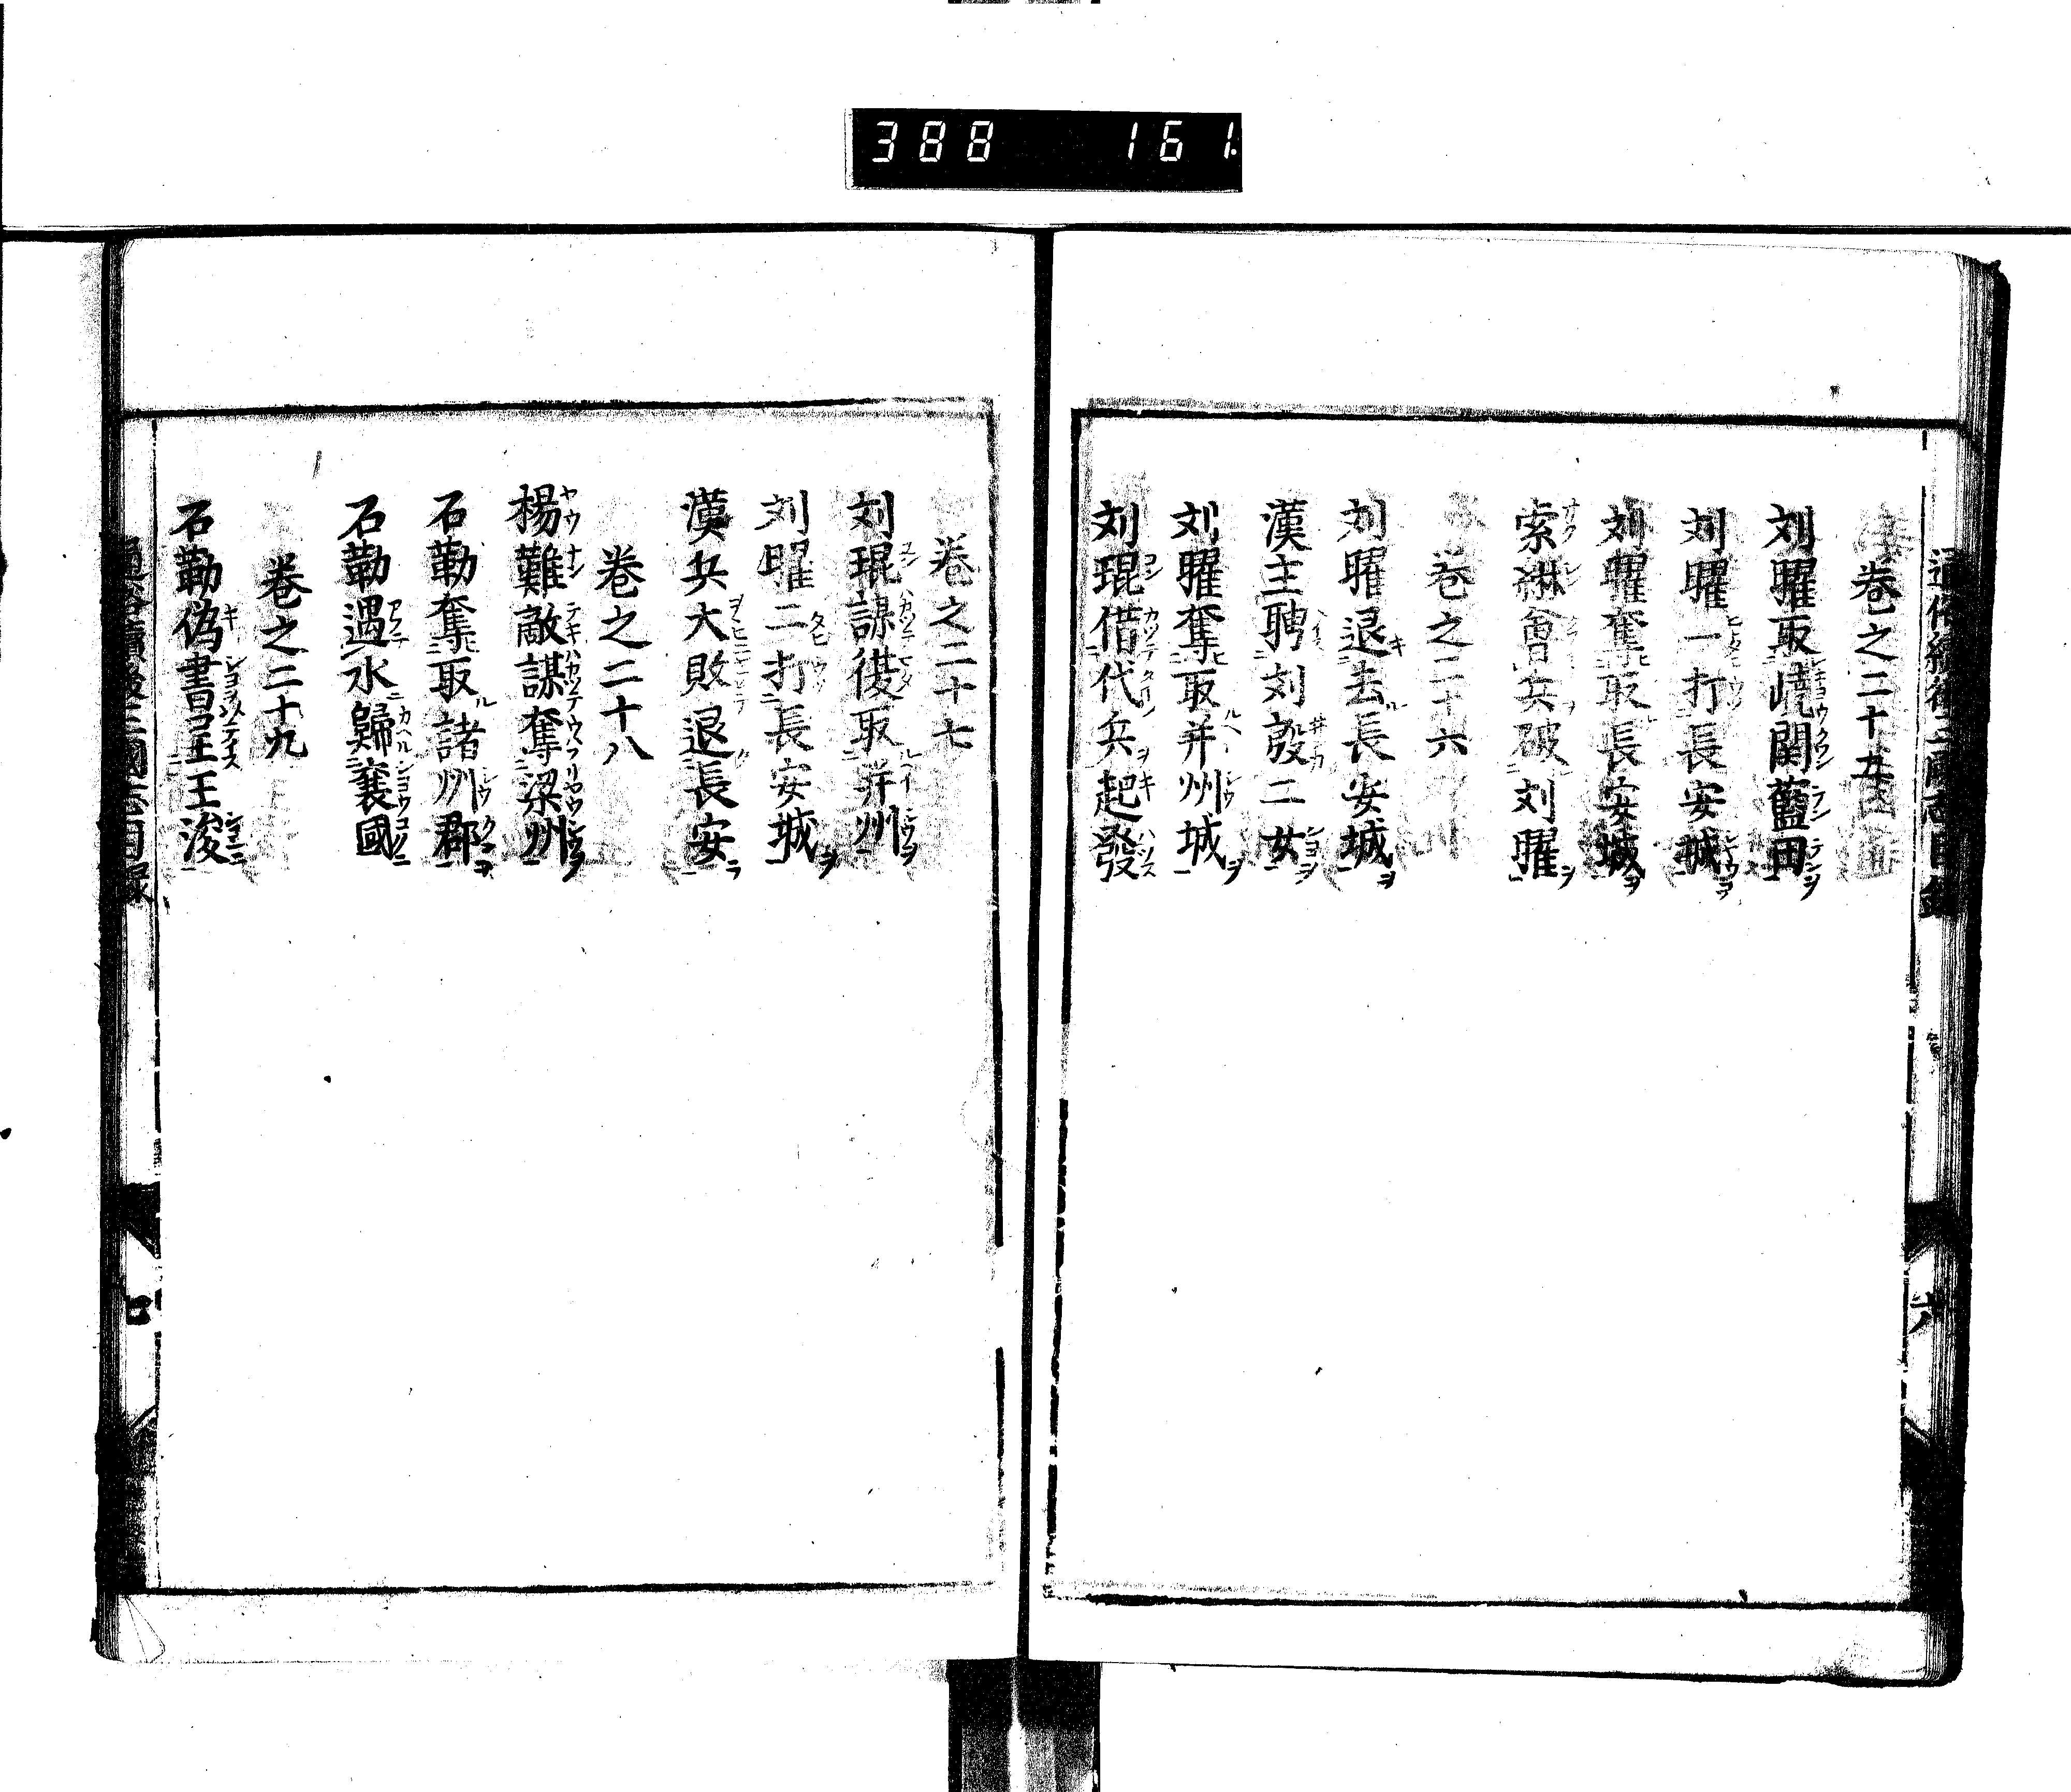 388 161
通俗續後三國志目錄
卷之二十五
刘曜取嶢関藍田
刘曜一打長安城
刘曜奪取長安城
索綝會兵破刘曜
卷之二十六
刘曜退去長安城
漢主聘刘殷二女
刘曜奪取并州城
刘琨借代兵起發
六
卷之二十七
刘琨謀復取并州
刘曜二打長安城
漢兵大敗退長安
卷之二十八
楊難敵謀奪梁州
石勒奪取諸州郡
石勒遇水歸襄國
卷之二十九
石勒偽書呈王浚
通俗續後三國志目録
七